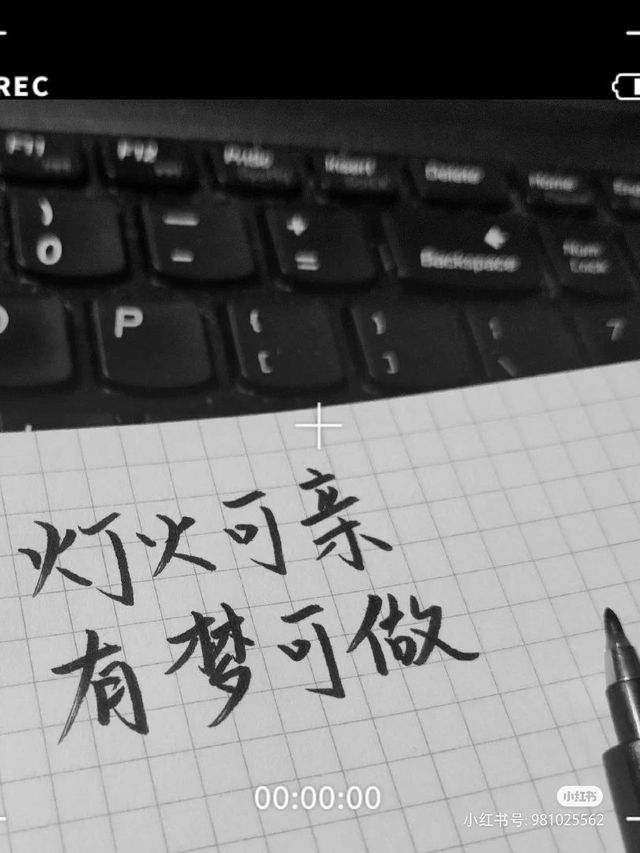 REC
F11
F12
Insert
Delete
Home
)
0
—
-
+
=
Backspace
Num
Lock
P
{
[
}
]
7
灯火可亲
有梦可做
00:00:00
小红书
小红书号: 981025562